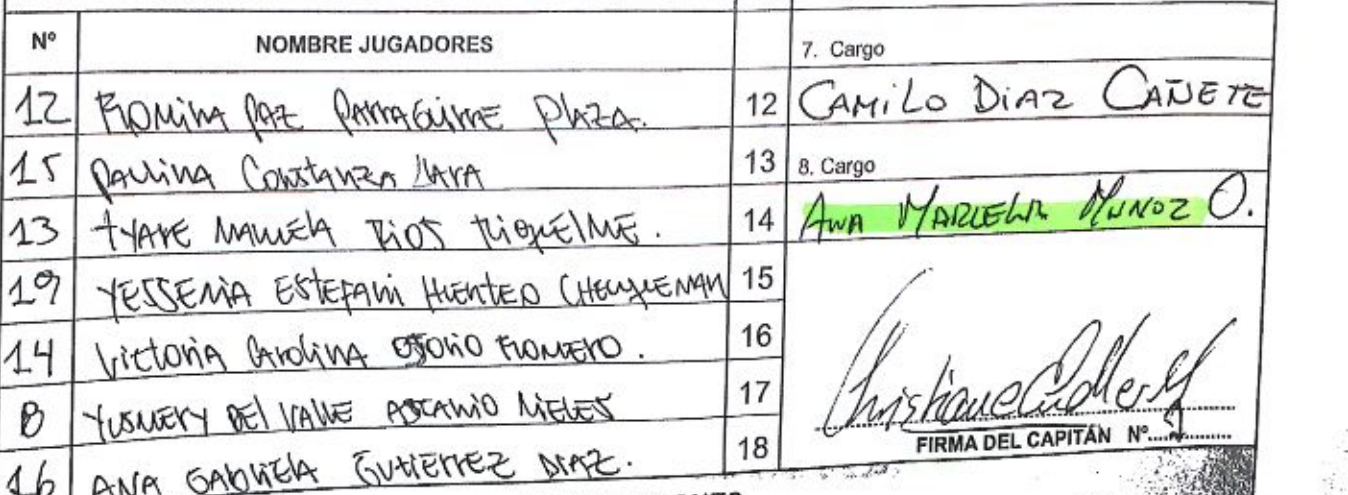 Nº NOMBRE JUGADORES 7. Cargo
12 ROMINA PAZ PARRAGUIRRE PLAZA. 12 CAMILO DIAZ CAÑETE
15 PAULINA CONSTANZA LARA 13 8. Cargo
13 TYARE MANUELA RIOS RIQUELME. 14 ANA MARIELA MUNOZ O.
19 YESSENIA ESTEFANI HUENTEO CHEUQUEMAN 15
14 VICTORIA CAROLINA OSORIO ROMERO. 16
8 YUSMERY DEL VALLE ASCANIO MIELES 17
FIRMA DEL CAPITÁN Nº 1
16 ANA GABRIELA GUTIERREZ DIAZ. 18